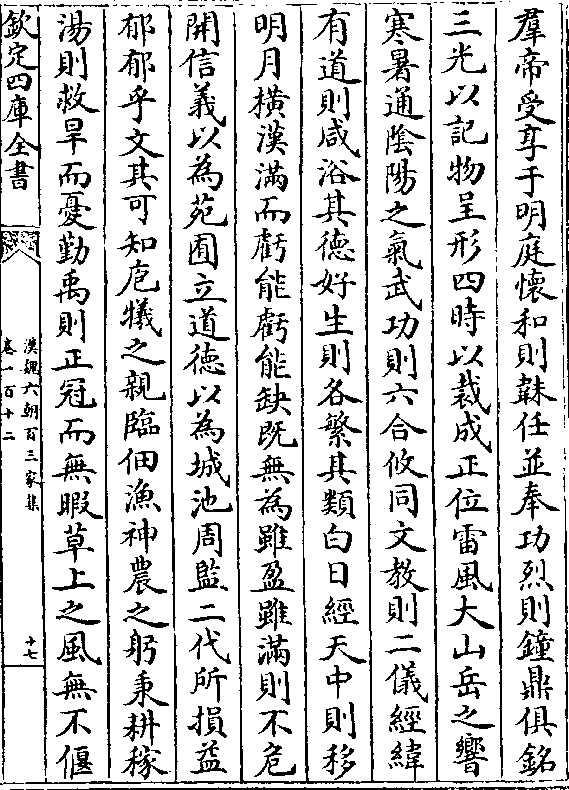 羣帝受享于明庭懷和則韎任並奉功烈則鐘鼎俱銘
三光以記物呈形四時以裁成正位雷風大山岳之響
寒暑通陰陽之氣武功則六合攸同文教則二儀經緯
有道則咸浴其德好生則各繁其類白日經天中則移
明月橫漢滿而虧能虧能缺既無為雖盈雖滿則不危
開信義以為苑囿立道德以為城池周監二代所損益
郁郁乎文其可知庖犧之親臨佃漁神農之躬秉耕稼
湯則救旱而憂勤禹則正冠而無暇草上之風無不偃
欽定四庫全書
漢魏六朝百三家集
卷一百十二
十七